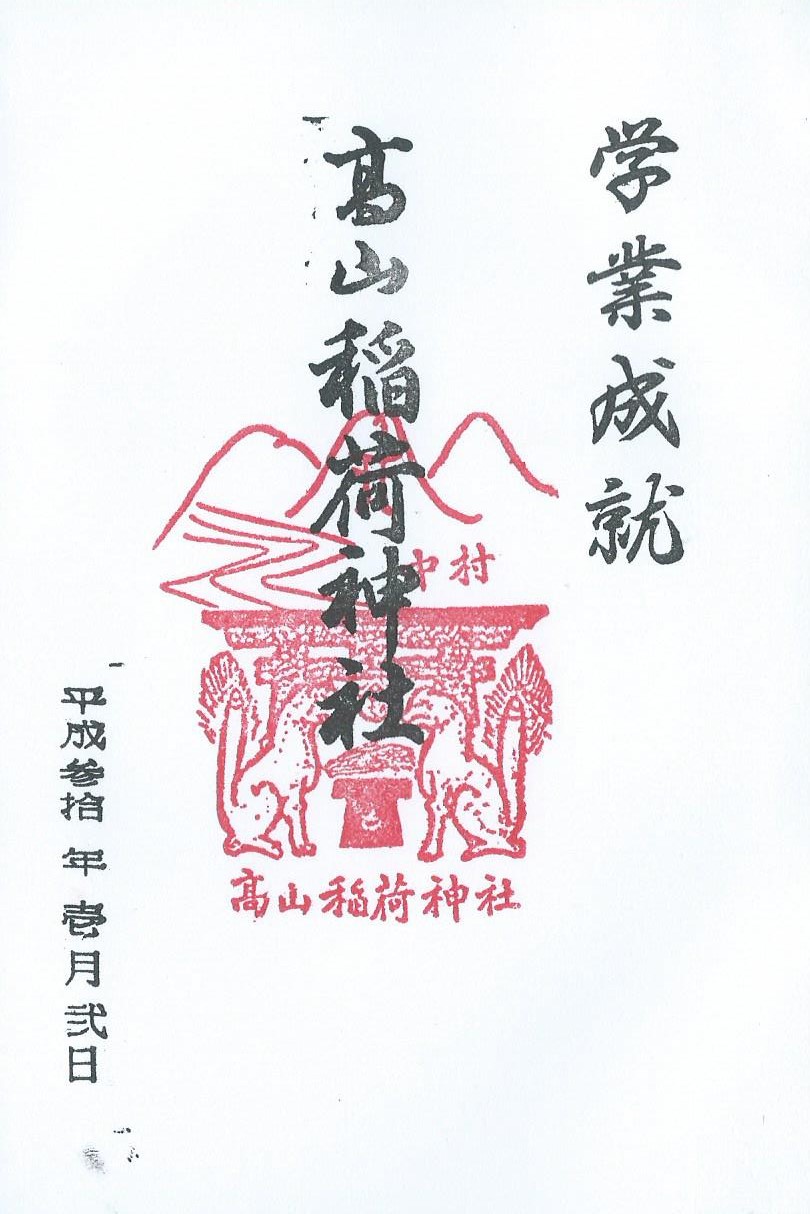 学業成就
髙山稲荷神社
中村
髙山稲荷神社
平成参拾年壱月弐日